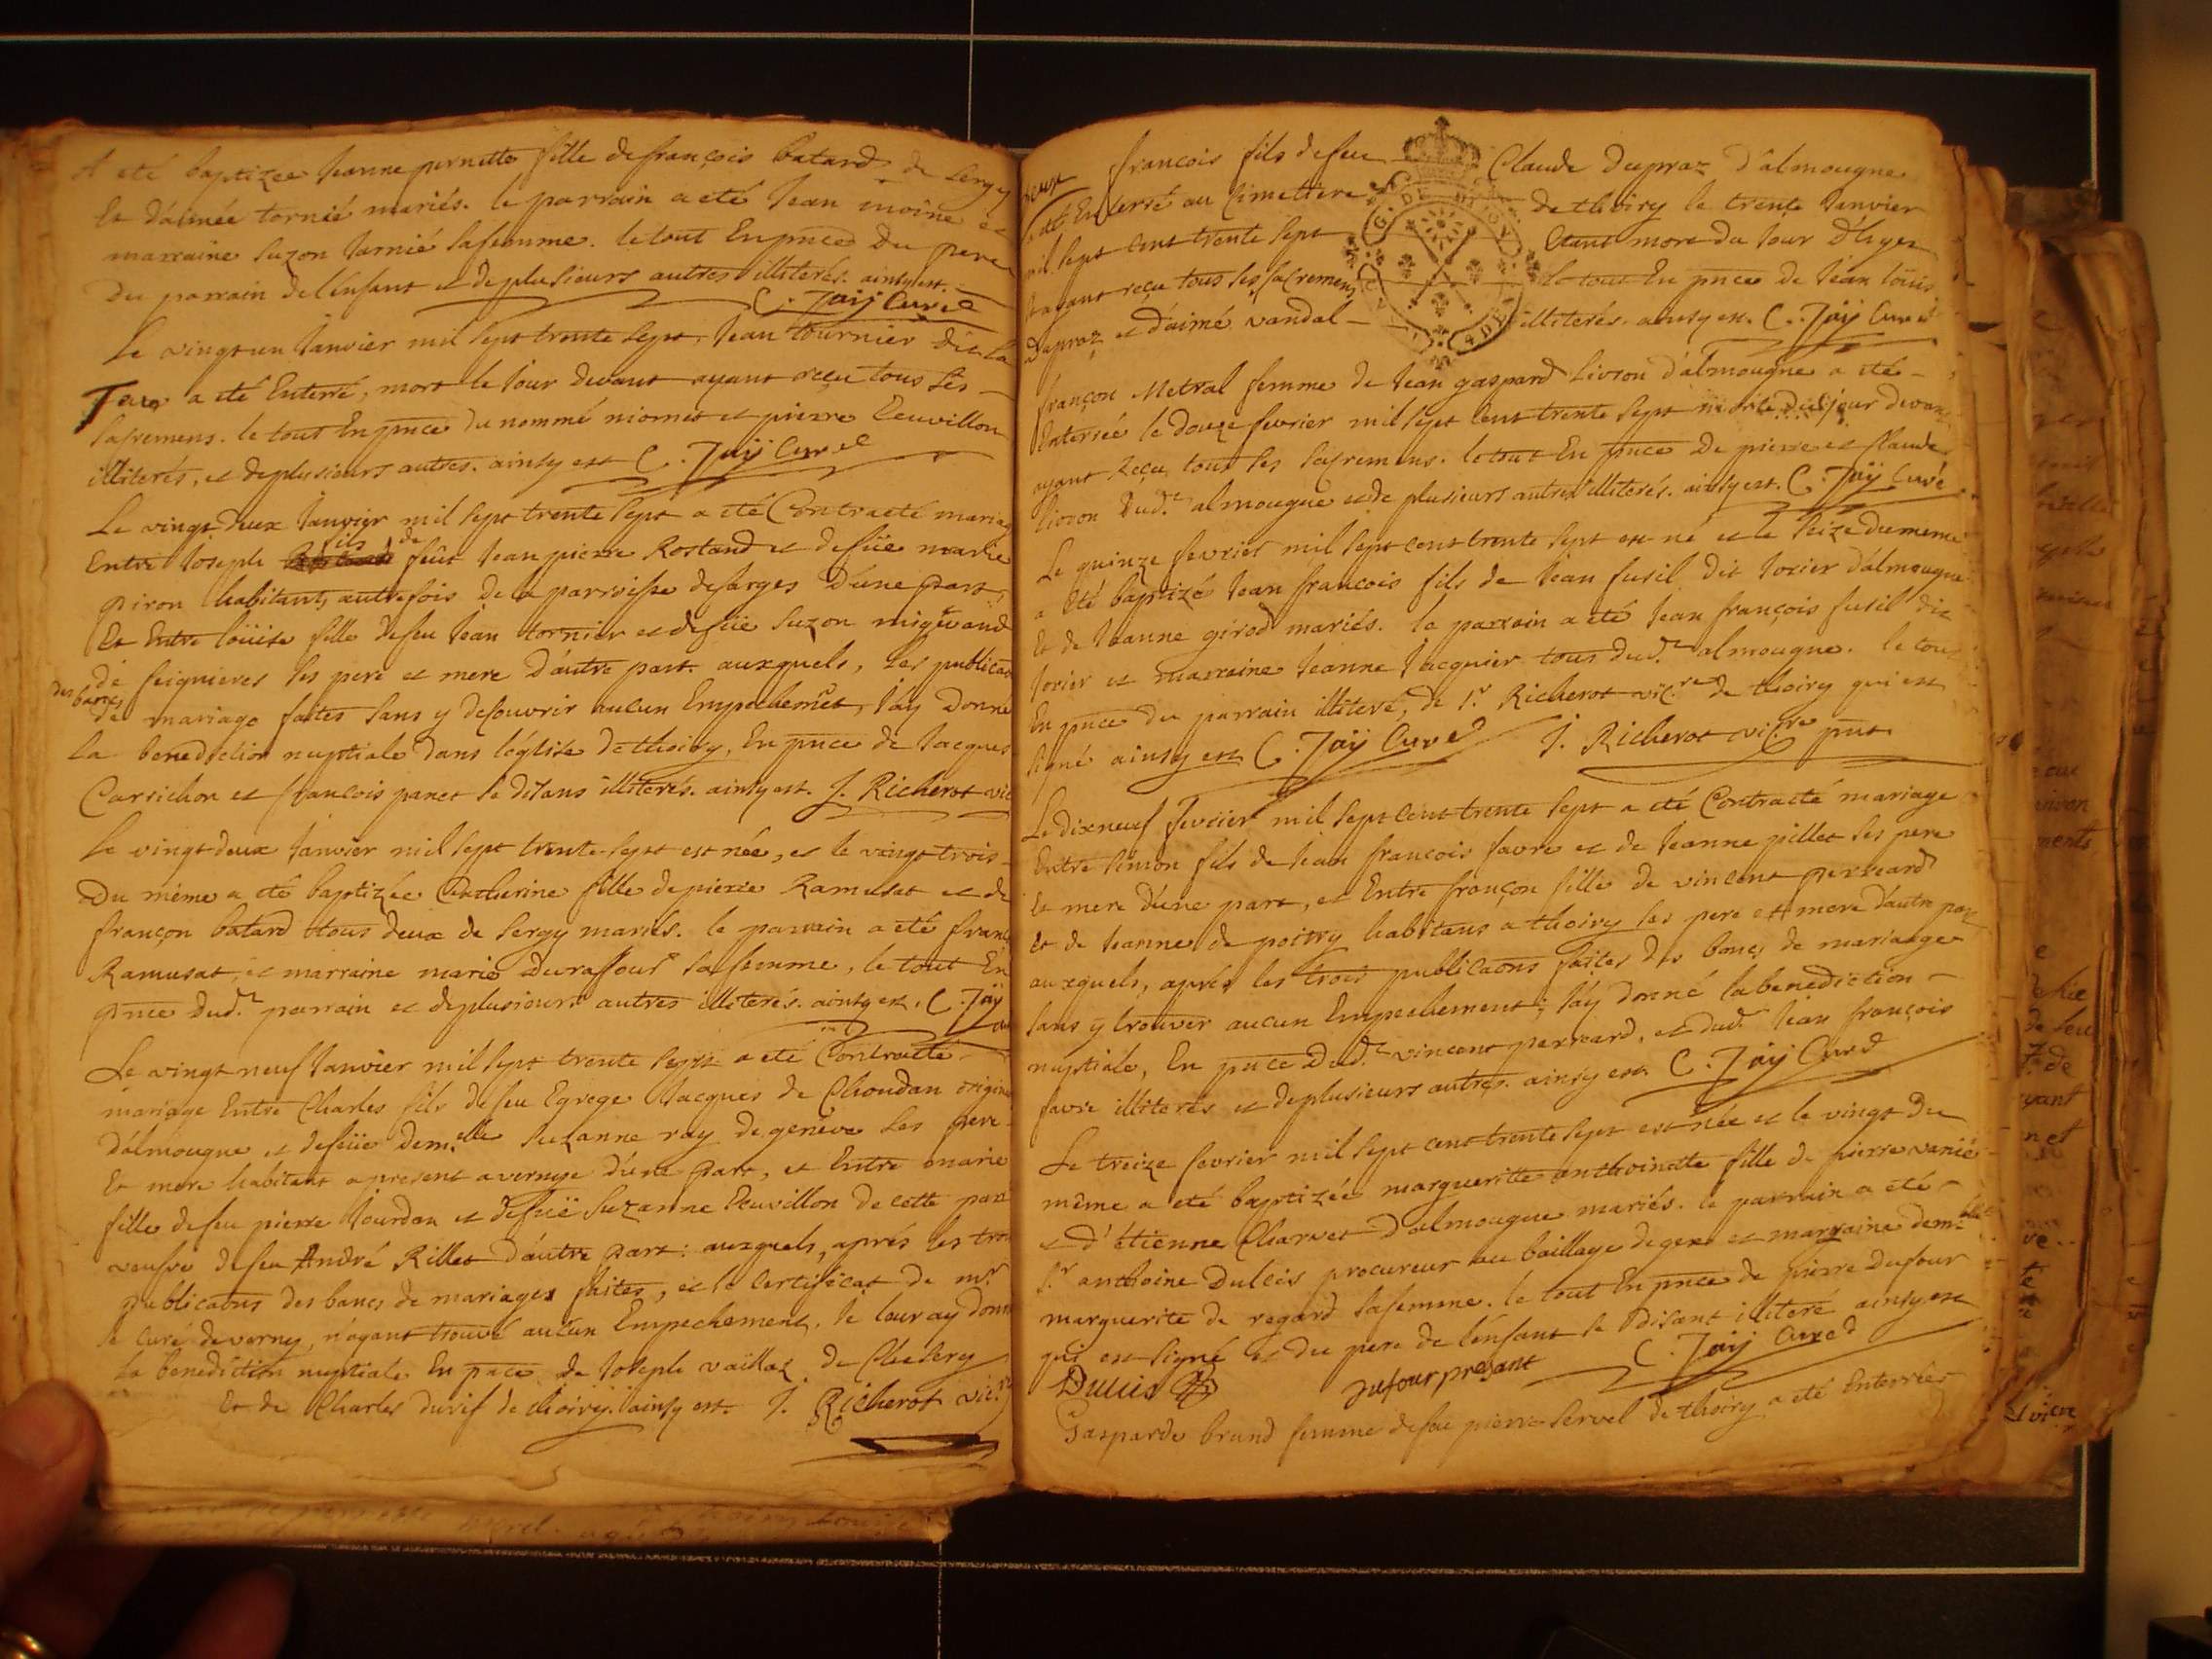 A eté baptizee Jeanne pernette fille de françois batard de Sergy
Et d'aimée tornié mariés. le parrain a eté Jean moine et
marraine Suzon tarnié Sa femme. le tout En pnce Du pere
Du parrain de l'enfant et de plusieurs autres illiterés. ainsy est.
C. Jaÿ Curé
Le vingt un Janvier mil Sept trente Sept Jean tournier Dit la
a eté Enterré, mort le Jour devant ayant reçu tous les
Sacremens. le tout En pnce du nommé et pierre Eeuvillon
illiterés, et de plusieurs autres. ainsy est C. Jaÿ Curé
Le vingt deux Janvier mil Sept trente Sept a eté Contracté mariag
Entre Joseph fils de feüt Jean pierre Rostand et de füe marie
piron habitant, autrefois de la parroisse de farges D'une part,
Et Entre loüise fille de feu Jean tornier et de füe Suzon
de feignieres Ses pere et mere D'autre part. auxquels, les publicaõ
des bancs
de mariage faites Sans y decouvrir aucun Empechemẽt, J'ay Donné
La benediction nuptiale Dans l'église de thoiry, En pnce de Jacques
Carrichon et françois panet Se disans illiterés. ainsy est. J. Richerot vic
Le vingt deux Janvier mil Sept trente Sept est née, et le vingt trois
Du même a eté baptizée Catherine fille de pierre Ramusat et de
françon batard tous deux de Sergy mariés. le parrain a eté franç
Ramusat, et marraine marie Duraffour Sa femme, le tout En
pnce Dud.t parrain et de plusieurs autres illiterés. ainsy est. C. Jaÿ
Le vingt neuf Janvier mil Sept trente Sept a eté Contracté
mariage Entre Charles fils de feu Egrege Jacques de Choudan origin
D'almougne et de feüe Dem.elle Suzanne ray de genêve Ses pere
Et mere habitant a present a D'une part, et Entre marie
fille de feu pierre Jourdan et de füe Suzanne Eeuvillon de cette par
veufve de feu André Rillet D'autre part: auxquels, aprés les troi
publicatõns des bancs de mariages faites, et le Certificat de m.r
le Curé de n'ayant trouvé aucun Empechement. Je leur ay donn
La benediction nuptiale En pnce de Joseph vaillaz de
Et de Charles durif de thoiry. ainsy est. J. Richerot vic.re
francois fils de feu Claude Dupraz D'almougne
a eté Enterré au Cimettiere de thoiry le trente Janvier
mil Sept cent trente Sept Etant mort du Jour D'hyer
Et ayant reçu tous les Sacremens le tout En pnce de Jean loüis
Dupraz et d'aimé vandal illiterés. ainsy est. C. Jaÿ Curé
françon Metral femme de Jean gaspard Livron d'almougne a eté
Enterrée le douze fevrier mil Sept cent trente Sept morte Du jour devant
ayant Reçu tous les Sacremens. le tout En pnce De pierre et Claude
livron Dud.t almougne et de plusieurs autres illiterés. ainsy est. C. Jaÿ Curé
Le quinze fevrier mil Sept cent trente Sept est né et le Seize Du meme
a eté baptizé Jean francois fils de Jean fusil dit Jorier d'almougne
Et de Jeanne girod mariés. le parrain a eté Jean françois fusil dit
Jorier et marraine Jeanne Jacquier tous Dud.t almougne. le tout
En pnce du parrain illiteré, de S.r Richerot vic.re de thoiry qui est
Signé ainsy est C. Jaÿ Curé J. Richerot vic.re pnt
Le dixneuf fevrier mil Sept cent trente Sept a eté Contracté mariage
Entre Simon fils de Jean françois favre et de Jeanne pillet Ses pere
Et mere D'une part, et Entre françon fille de vincent perreard
Et de Jeanne de poitry habitans a thoiry Ses pere et mere d'autre par
auxquels, aprés les trois publicaõns faites des bancs de mariage
Sans y trouver aucun Empechement; J'aÿ donné la benediction
nuptiale, En pnce Dud.t vincent perreard, et dud.t Jean françois
favre illiterés et de plusieurs autres. ainsy est C. Jaÿ Curé
Le treize fevrier mil Sept cent trente Sept est née et le vingt Du
même a eté baptizée margueritte anthoinette fille de pierre varié
et d'étienne Charvet d'almougne mariés. le parrain a eté
S.r anthoine Dulcis procureur au baillage de gex et marraine dem.elle
marguerite de regard Sa femme. le tout En pnce de pierre Dufour
qui est Signé et du pere de l'enfant Se Disant illiteré ainsy est
Dulcis Dufour presant C. Jaÿ Curé
Gasparde brund femme de feu pierre Servel de thoiry a eté Enterrée